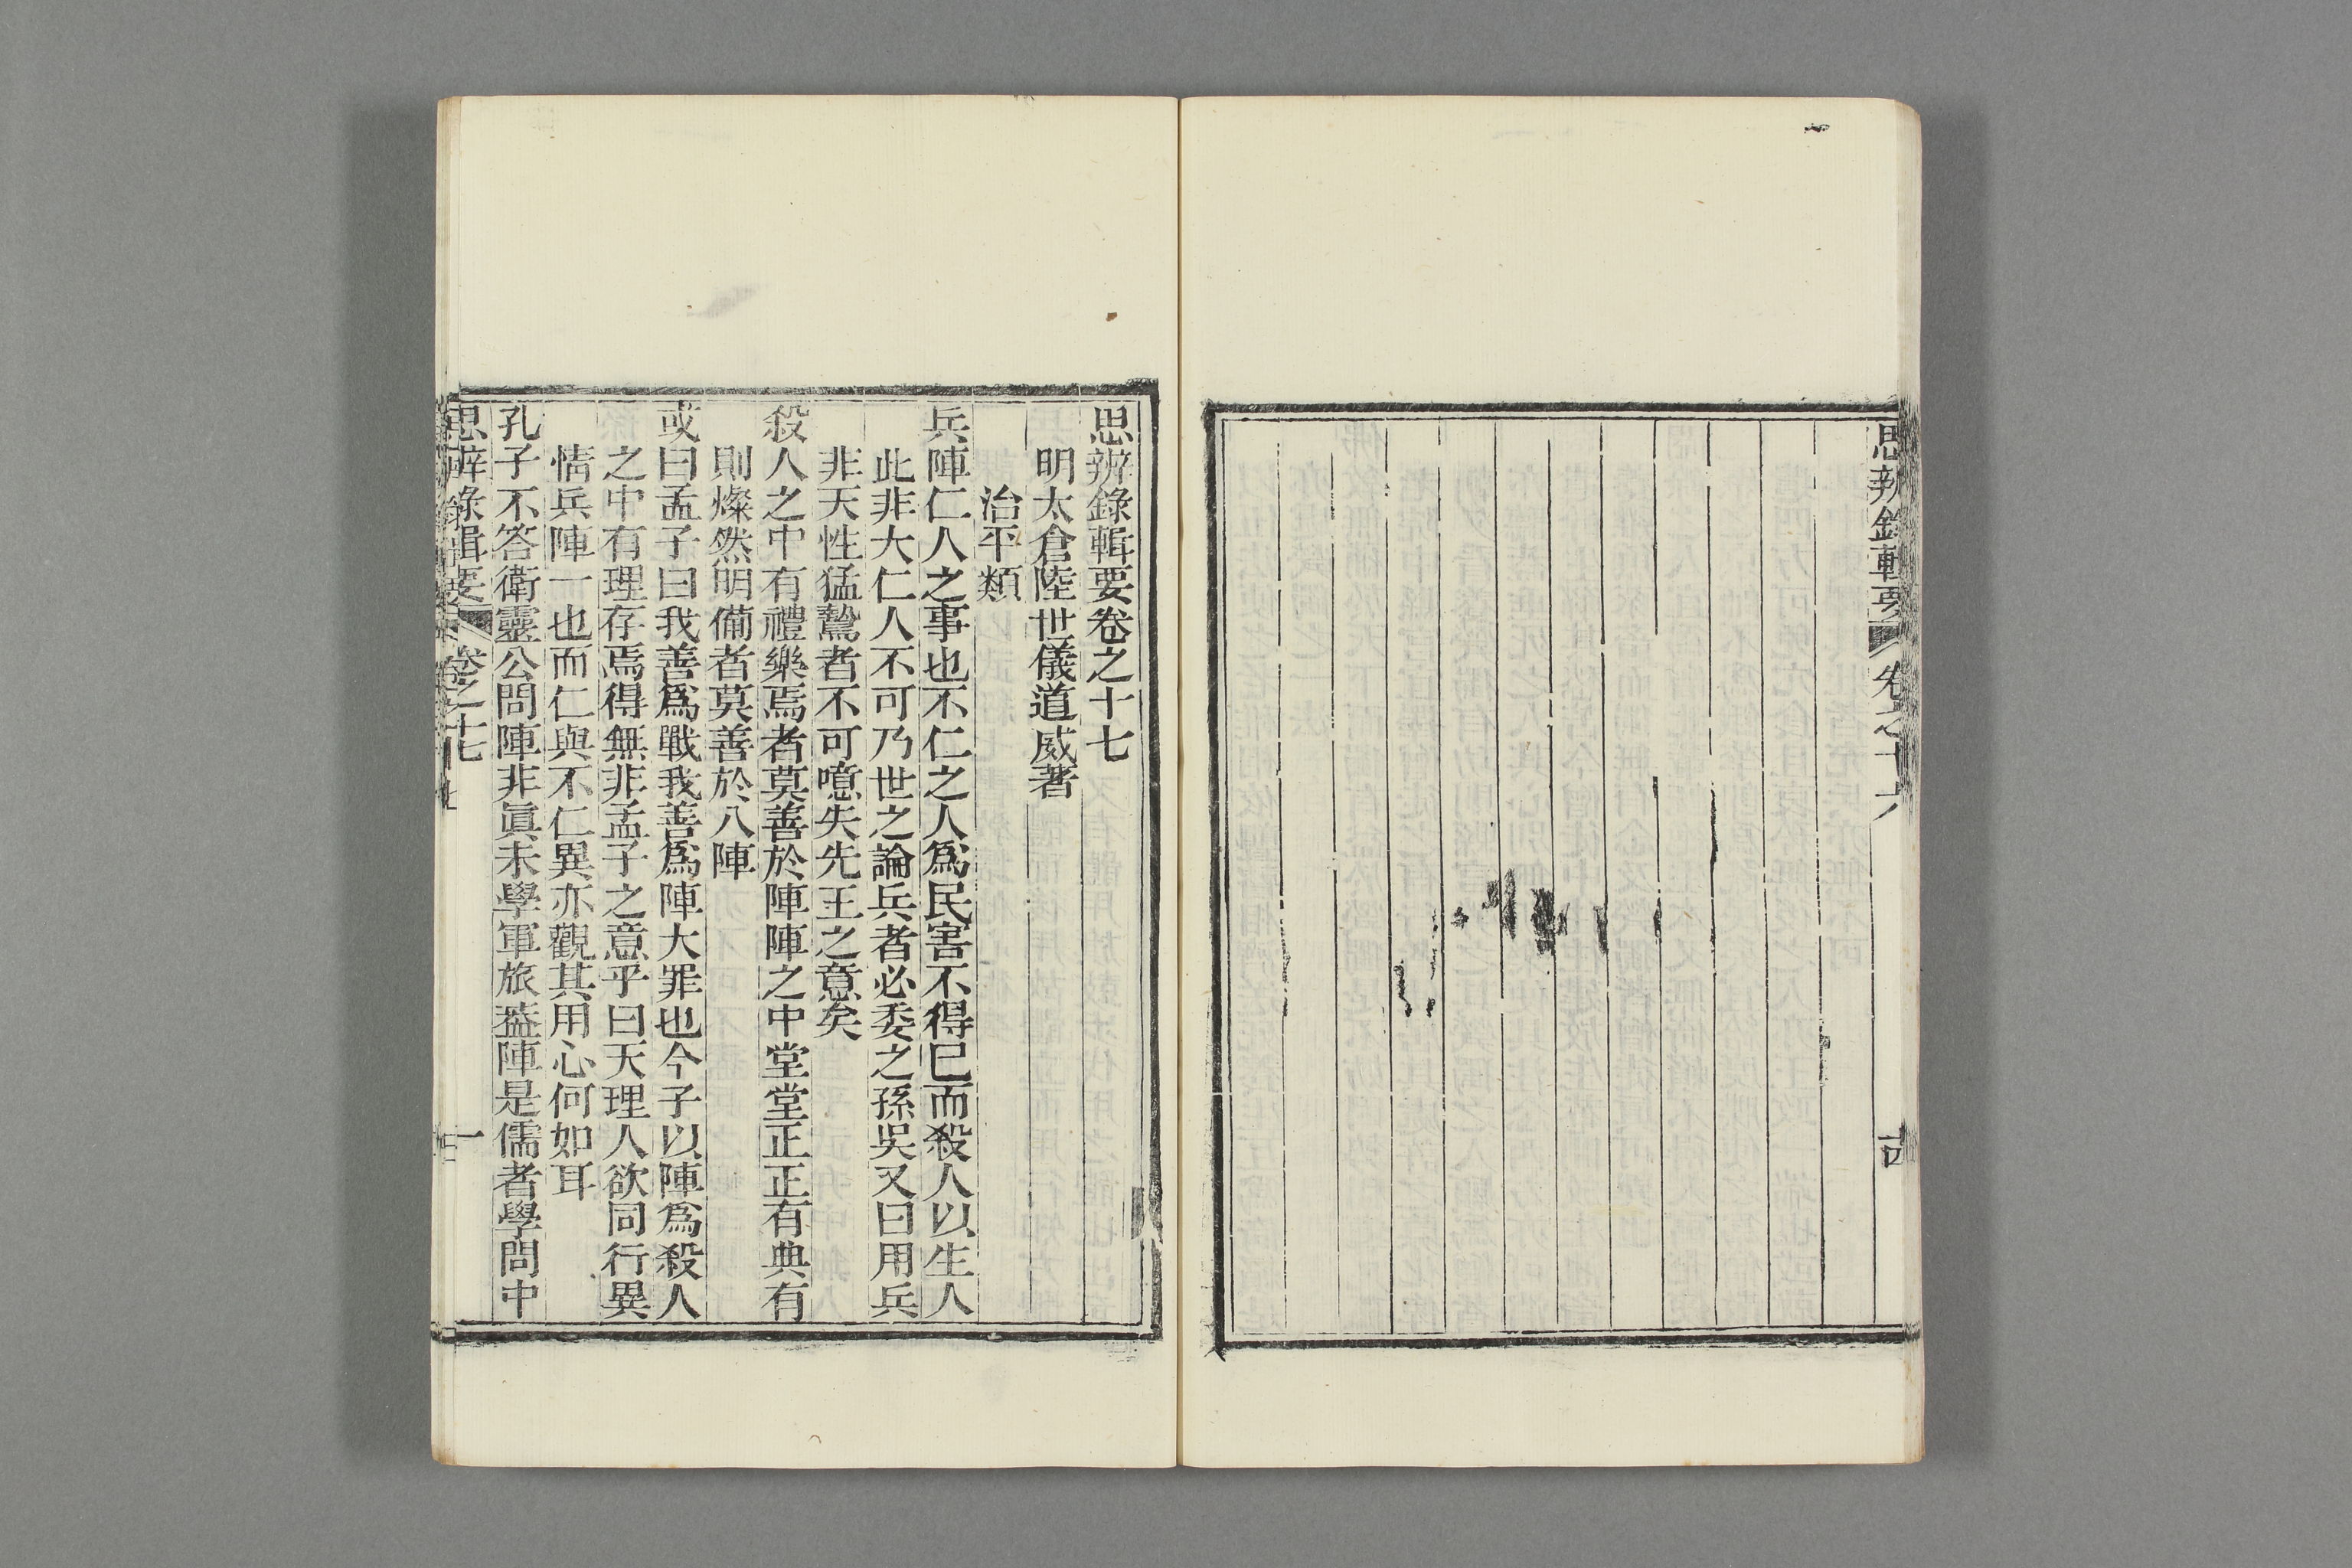 思辨錄輯要 卷之十六 十四
思辨錄輯要卷之十七
明太倉陸世儀道威著
治平類
兵陣仁人之事也不仁之人爲民害不得已而殺人以生人
此非大仁人不可乃世之論兵者必委之孫吳又曰用兵
非天性猛鷙者不可噫失先王之意矣
殺人之中有禮樂焉者莫善於陣陣之中堂堂正正有典有
則燦然明備者莫善於八陣
或曰孟子曰我善爲戰我善爲陣大罪也今子以陣爲殺人
之中有理存焉得無非孟子之意乎曰天理人欲同行異
情兵陣一也而仁與不仁異亦觀其用心何如耳
孔子不答衛靈公問陣非眞未學軍旅蓋陣是儒者學問中
思辨錄輯要 卷之十七 一